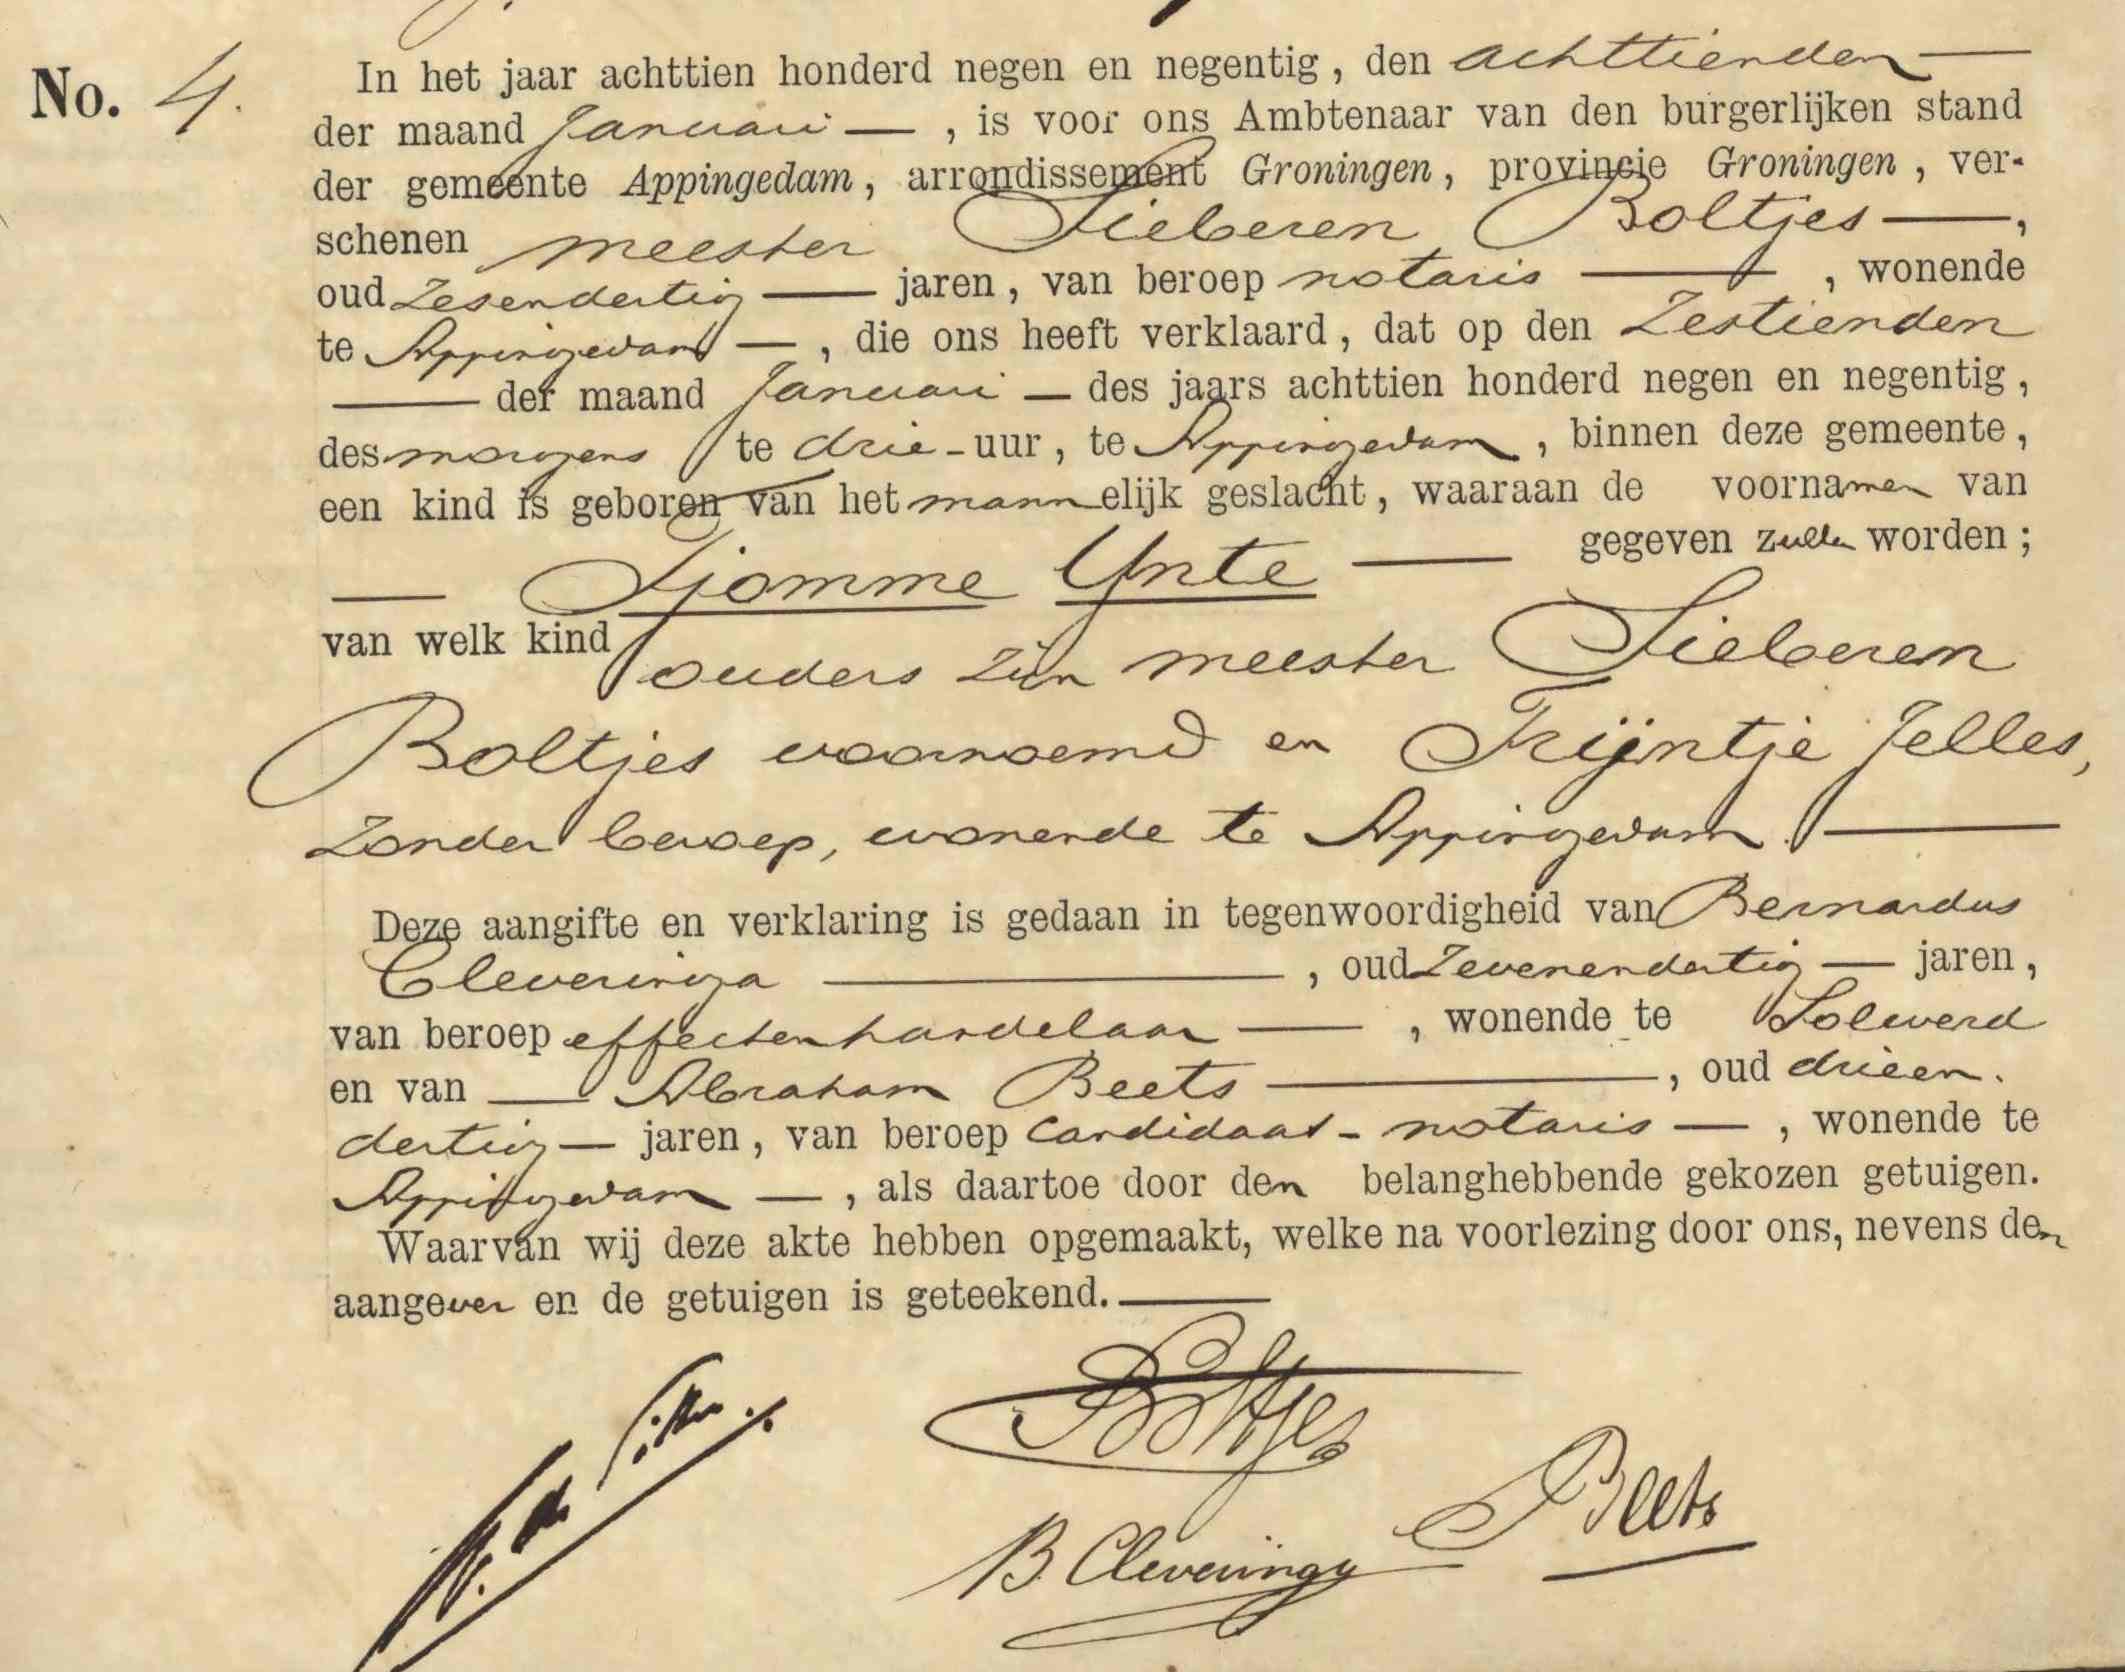 No. 4. In het jaar achttien honderd negen en negentig, den achttienden —
der maand Januari —, is voor ons Ambtenaar van den burgerlijken stand
der gemeente Appingedam, arrondissement Groningen, provincie Groningen, ver-
schenen meester Sieberen Boltjes —,
oud zesendertig — jaren, van beroep notaris —, wonende
te Appingedam —, die ons heeft verklaard, dat op den zestienden
— der maand Januari — des jaars achttien honderd negen en negentig,
des morgens te drie - uur, te Appingedam, binnen deze gemeente,
een kind is geboren van het mannelijk geslacht, waaraan de voornamen van
— Sjomme Ynte — gegeven zullen worden;
van welk kind ouders zijn meester Sieberen
Boltjes voornoemd en Trijntje Jelles,
zonder beroep, wonende te Appingedam. —
Deze aangifte en verklaring is gedaan in tegenwoordigheid van Bernardus
Cleveringa —, oud zevenendertig — jaren,
van beroep effectenhandelaar —, wonende te Solwerd
en van — Abraham Beets —, oud drieën-
dertig — jaren, van beroep candidaat-notaris —, wonende te
Appingedam —, als daartoe door den belanghebbende gekozen getuigen.
Waarvan wij deze akte hebben opgemaakt, welke na voorlezing door ons, nevens den
aangever en de getuigen is geteekend. —
Boltjes
Beets
B. Cleveringa